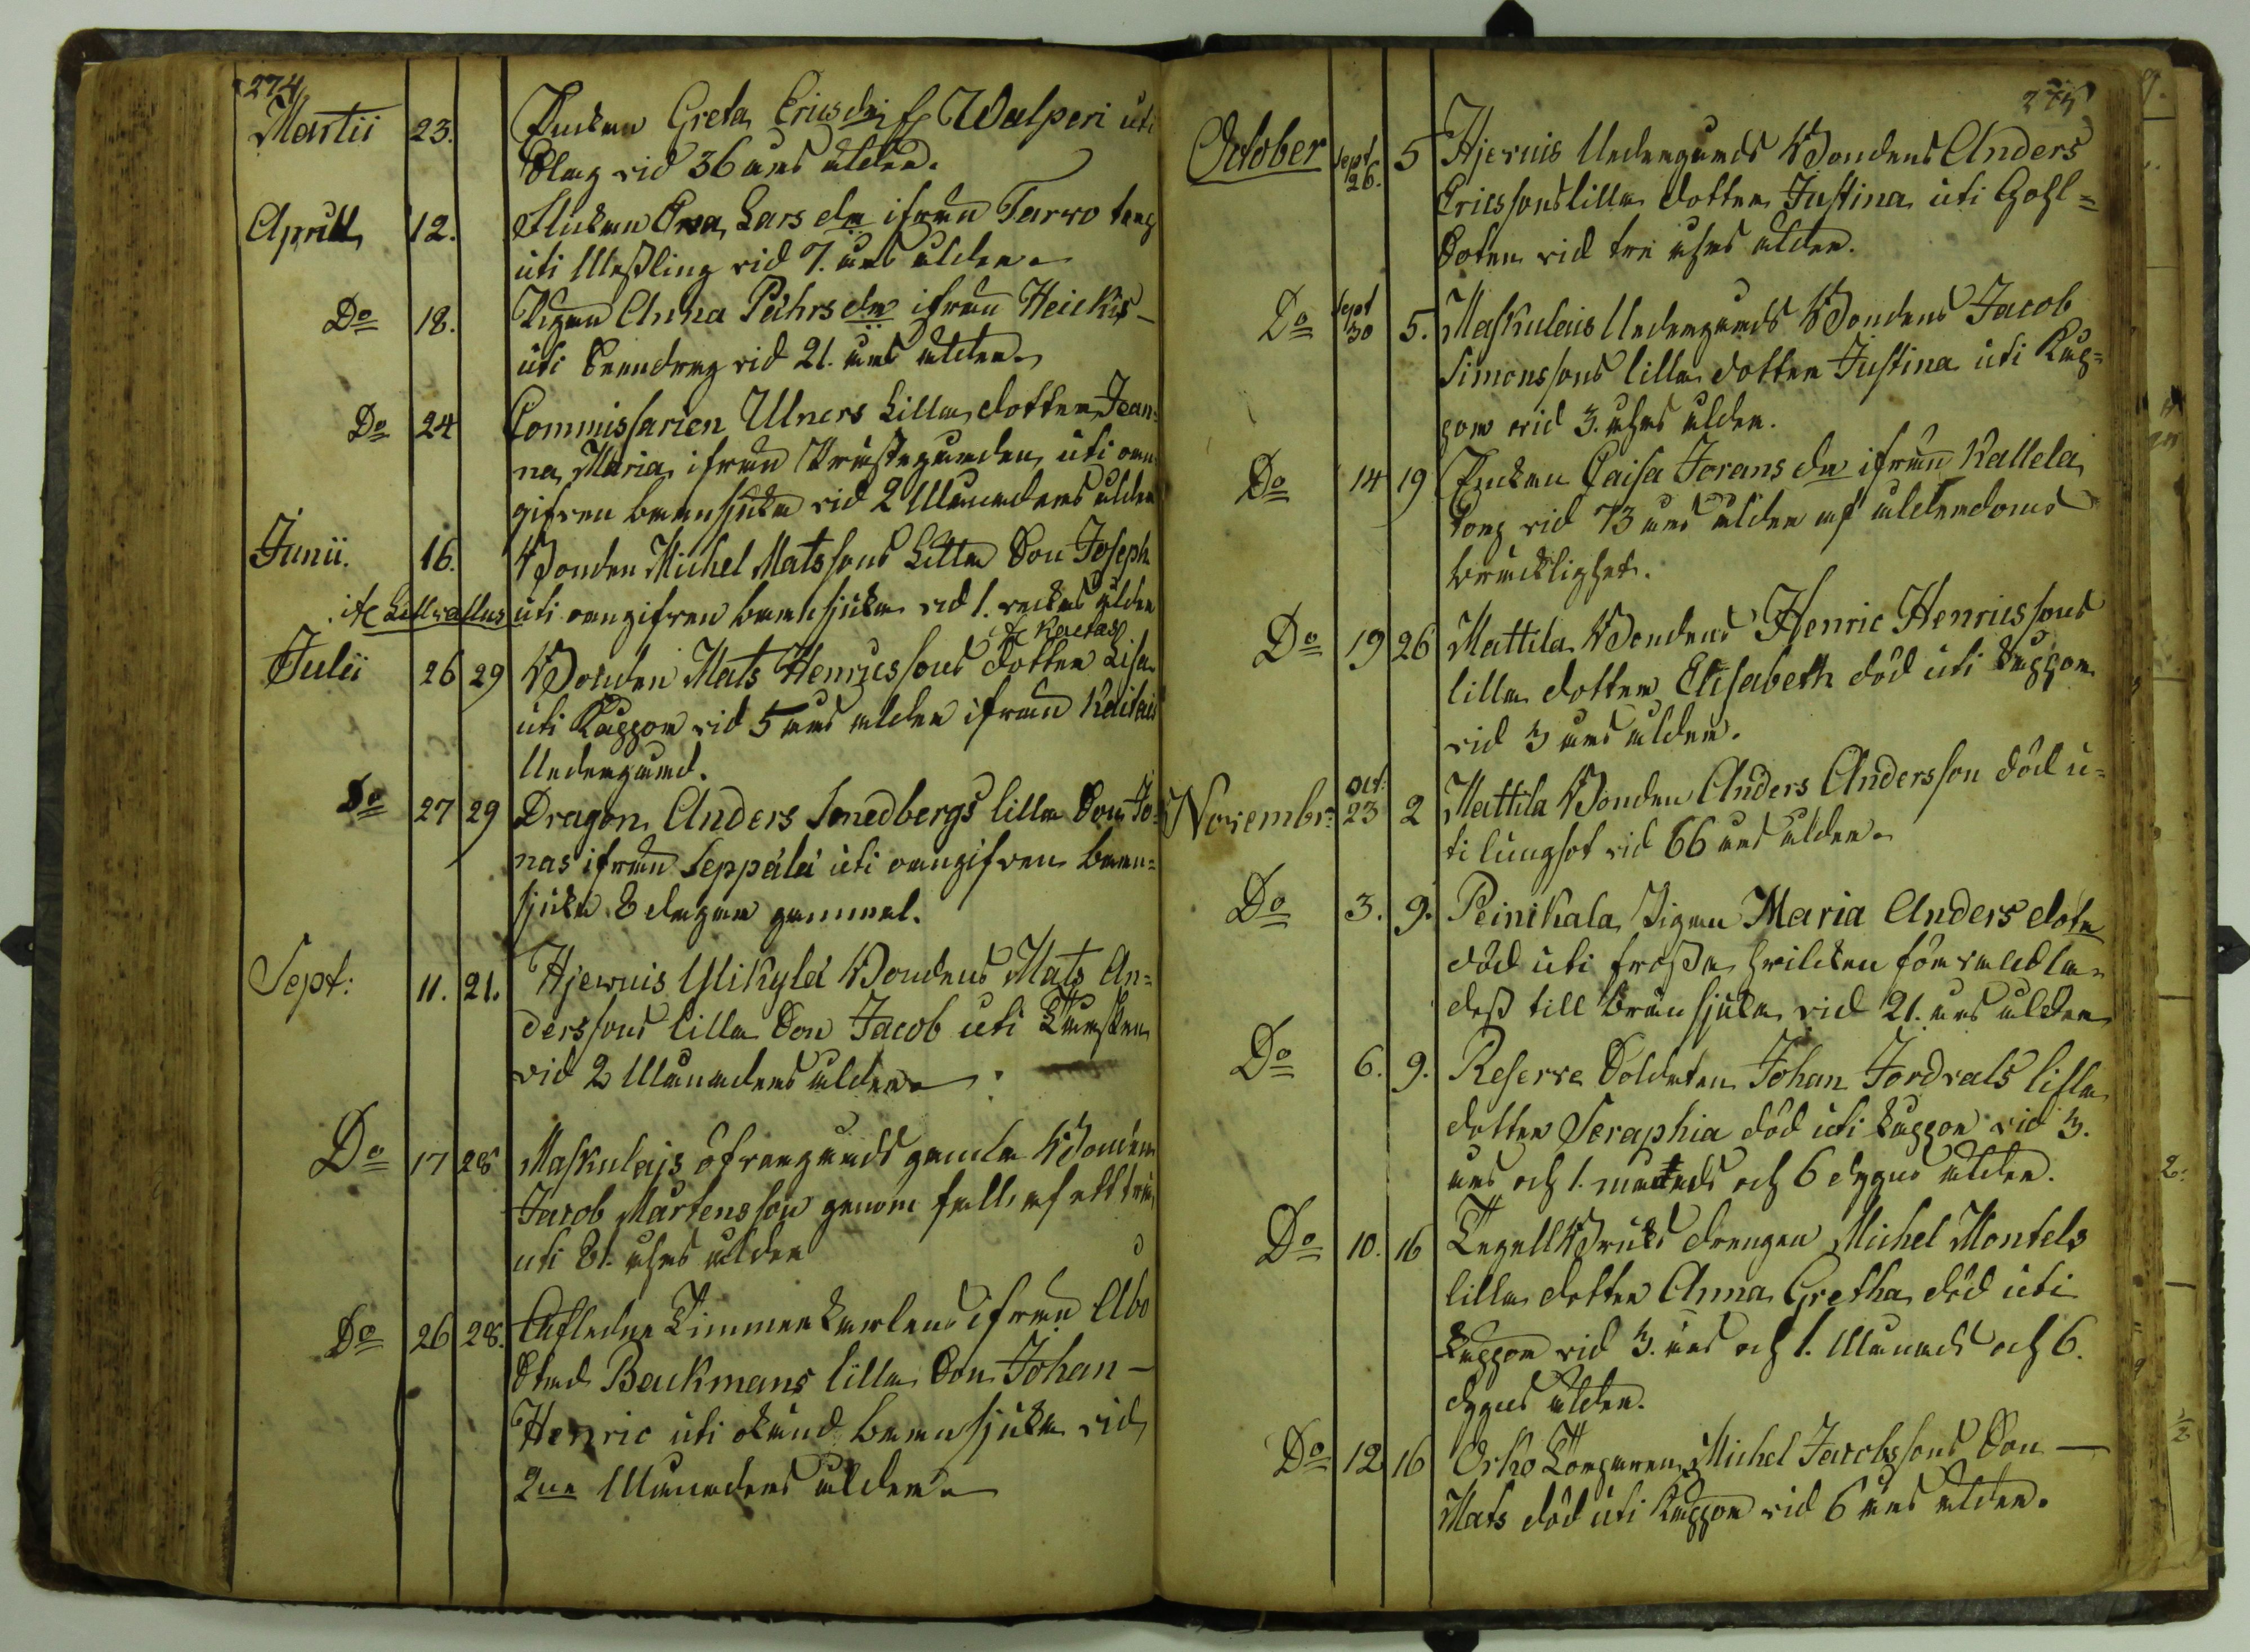 274
Martii 23. Enckan Greta Ericsdr if Walperi uti
Slag vid 36 åhrs ålder.
Aprill 12. Flickan Eva Lars dr ifrån Tarvo torp
uti Meßling vid 7. åhrs ålder.
Do 18. Pigan Anna Påhrs dr ifrån Heickis
uti vid 21. åhrs ålder.
Do 24 Commissarien Ulners Lilla dotter Joan=
na Maria ifrån Prästegården uti oan
gifven barnsjuka vid 2 Månaders ålder
Junii. 16. Bonden Michel Matssons Lilla Son Joseph
uti oangifven barnsjuka vid 1. veckas ålder
Julii 26 29 Bonden Mats Henricssons Dotter Lisa
uti Kåppor vid 5 åhrs ålder ifrån
Nedergård.
Do 27 29 Dragon Anders Smedbergs lilla Son Jo=
nas ifrån Seppälä uti oangifven barn=
sjuka 8 dagar gammal.
Sept: 11. 21. Hjervis Ylikylä Bondens Mats An=
derssons lilla Son Jacob uti
vid 2 Månaders ålder.
Do 17 28 Maskulajs öfvergårds gamla Bonden
Jacob Mårtensson genom fall af ett trä
uti 81. åhrs ålder
Do 26 28. Afledne Timmerkarlens ifrån Abo
Stad Backmans lilla Son Johan
Henric uti okänd barnsjuka vid
2ne Månaders ålder.
275
October Sept 26. 5 Hjervis Nedergårds Bondens Anders
Ericssons lilla dotter Justina uti
Soten vid tre åhrs ålder.
Do Sept 30 5. Maskulais Nedergårds Bondens Jacob
Simonssons lilla dotter Justina uti Kåp=
por vid 3. åhrs ålder.
Do 14 19 Enckan Caisa Jorans dr ifrån Kallela
torp vid 73 åhrs ålder af ålderdoms
bräcklighet.
Do 19 26 Mattila Bondens Henric Henricssons
lilla dotter Elisabeth död uti Kåppor
vid 3 åhrs ålder.
Novembr: Oct: 23 2 Mattila Bonden Anders Andersson död u=
ti lungsot vid 66 åhrs ålder.
Do 3. 9. Peinikala Pigan Maria Anders doter
död uti froßa hvilcken förvandla=
des till brännsjuka vid 21. åhrs ålder
Do 6. 9. Reserve Soldaten Johan Jordvals lilla
dotter Seraphia död uti Kåppor vid 3.
åhrs och 1. månads och 6 dygns ålder.
Do 10. 16 Tegellbruks drengen Michel Montels
lilla dotter Anna Gretha död uti
Kåppor vid 3. åhrs och 1. Månads och 6.
dygns ålder.
Do 12 16 Orko Torparen Michel Jacobssons Son
Mats död uti Kåppor vid 6 åhrs ålder.